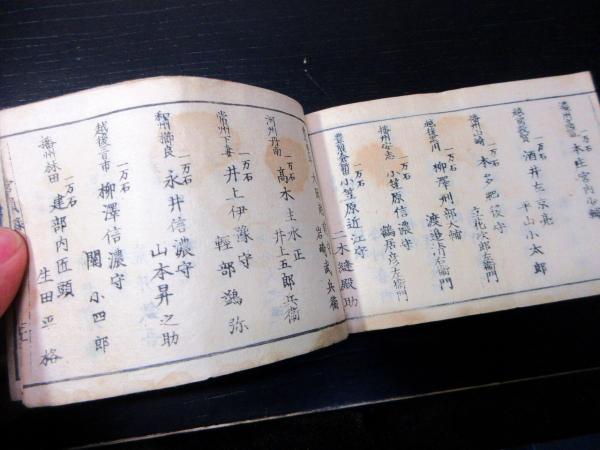 本庄宮内少輔
越前敦賀
一万石
酒井左京亮
平山小太郎
播州山崎
一万石
本多肥後守
立花次郎左衛門
越後黒川
一万石
柳澤刑部大輔
播州安志
一万石
小笠原信濃守
鶴居彦左衛門
一万石
小笠原近江守
二木縫殿助
河州丹南
一万石
高木主水正
井上五郎兵衛
常州下妻
一万石
井上伊豫守
軽部鵄弥
和州櫛良
一万石
永井信濃守
山本昇之助
越後三日市
一万石
柳澤信濃守
関小四郎
播州林田
一万石
建部内匠頭
生田平格